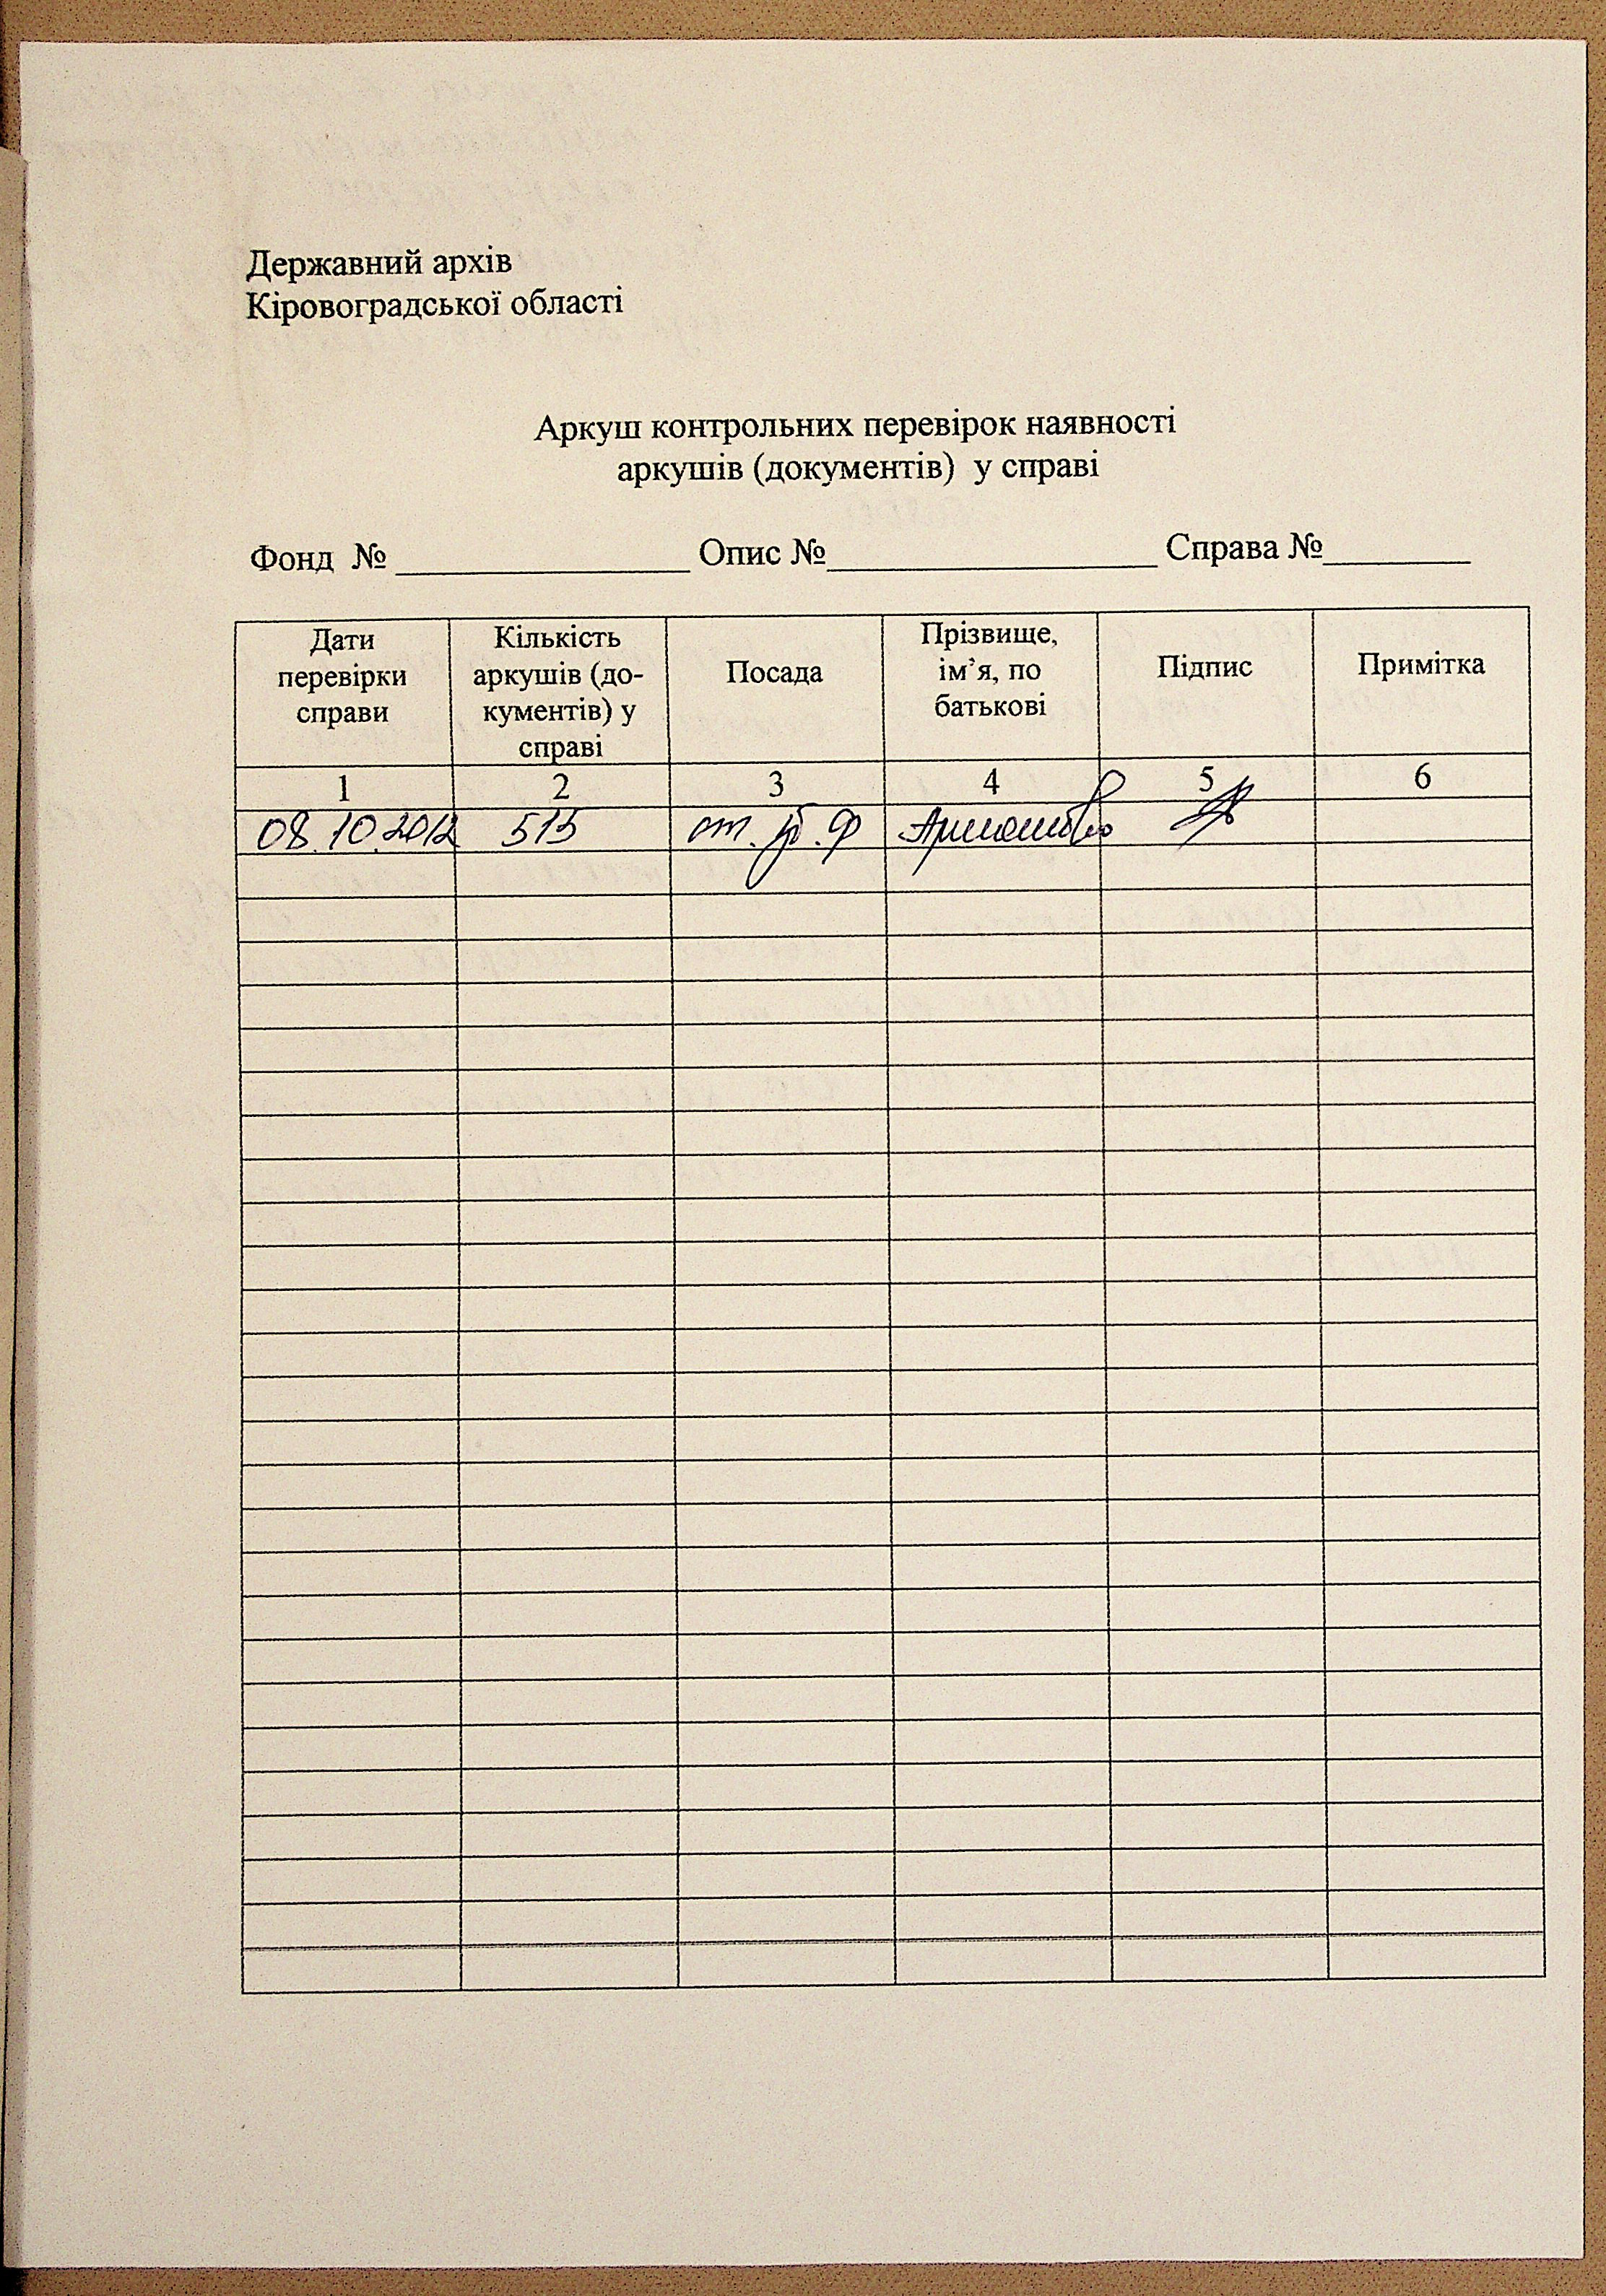 Державний архів
Кіровоградської області
Аркуш контрольних перевірок наявності
аркушів (документів) у справі
Фонд № ____________ Опис № ____________ Справа № ______
Дати перевірки справи
Кількість аркушів (до-кументів) у справі
Посада
Прізвище, ім’я, по батькові
Підпис
Примітка
1 2 3 4 5 6
08.10.2012 515